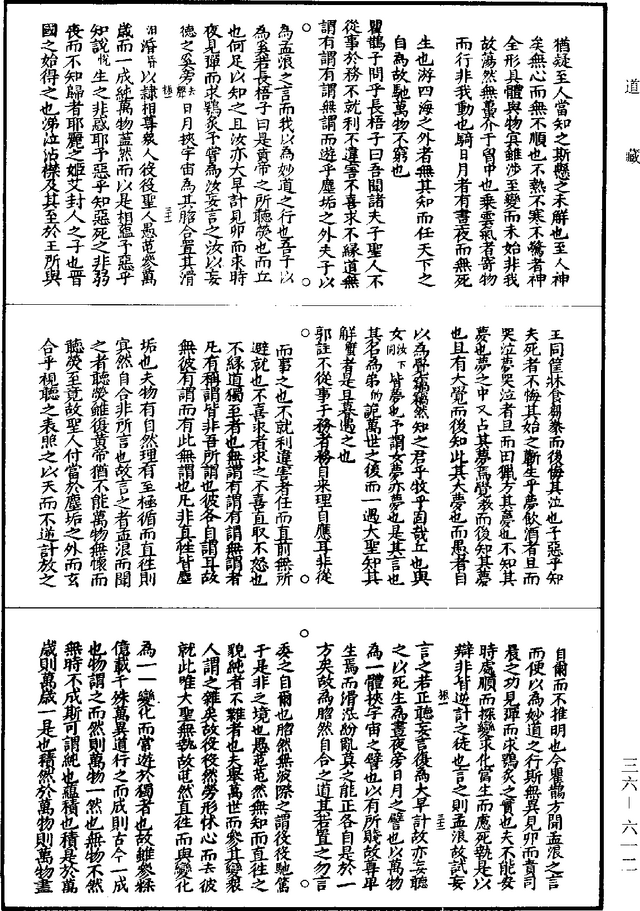 道藏
猶疑至人當知之斯懸之未解也至人神
矣無心而無不順也不熱不寒不驚者神
全形具體與物冥雖涉至變而未始非我
故蕩然無蠆介于胷中也乘雲氣者寄物
而行非我動也騎日月者有晝夜而無死
生也游四海之外者無其知而任天下之
自為故馳萬物不窮也
瞿鵲子問乎長梧子曰吾聞諸夫子聖人不
從事於務不就利不違害不喜求不緣道無
謂有謂有謂無謂而遊乎塵垢之外夫子以
為孟浪之言而我以為妙道之行也吾子以
為奚若長梧子曰是黃帝之所聽熒也而丘
也何足以知之且汝亦大早計見卵而求時
夜見彈而求鴞炙予嘗為汝妄言之汝以妄
德之奚旁日月挾宇宙為其脗合置其滑
汨涽昏以隸相尊衆人役役聖人愚芚參萬
歲而一成純萬物盡然而以是相蘊予惡乎
知說悅生之非惑耶予惡乎知惡死之非弱
喪而不知歸者耶麗之姬艾封人之子也晋
國之始得之也涕泣沾襟及其至於王所與
王同筐牀食芻豢而後悔其泣也予惡乎知
夫死者不悔其始之蘄生乎夢飲酒者旦而
哭泣夢哭泣者旦而田獵方其夢也不知其
夢也夢之中又占其夢焉覺教而後知其夢
也且有大覺而後知此其大夢也而愚者自
以為覺竊竊然知之君乎牧乎固哉丘也與
女汝下同皆夢也予謂女夢亦夢也是其言也
其名為弔的詭萬世之後而一遇大聖知其
解者是旦暮遇之也
郭註不從事于務者務自来理自應耳非從
而事之也不就利違害者任而直前無所
避就也不喜求者求之不喜直取不怒也
不緣道獨至者也無謂有謂有謂無謂者
凡有稱謂皆非吾所謂也彼各自謂耳故
無彼有謂而有此無謂也凡非真性皆塵
垢也夫物有自然理有至極循而直往則
冥然自合非所言也故言之者孟浪而聞
之者聽熒雖復黃帝猶不能萬物無懷而
聽熒至竟故聖人付當於塵垢之外而玄
合乎視聽之表照之以天而不逆計放之
自爾而不推明也今瞿鵲方聞孟浪之言
而便以為妙道之行斯無異見卵而責司
晨之功見彈而求鴞炙之實也夫不能安
時處順而探變求化當生而慮死執是以
辯非皆逆計之徒也言之則孟浪故試妄
言之若正聽妄言復為大早計故亦妄聽
之以死生為晝夜旁日月之譬也以萬物
為一體挾宇宙之譬也以有所賤故尊卑
生焉而滑涽紛亂莫之能正各自是於一
方矣故為脗然自合之道莫若置之勿言
委之自爾也脗然無波際之謂役役馳騖
于是非之境也愚芚芚然無知而直往之
貌純者不雜者也夫舉萬世而參其變衆
人謂之雜矣故役役然勞形怵心而去彼
就此唯大聖無執故芚然直往而與變化
為一一變化而常遊於獨者也故雖參糅
億載千殊萬異道行之而成則古今一成
也物謂之而然則萬物一然也無物不然
無時不成斯可謂純也蘊積也積是於萬
歲則萬歲一是也積然於萬物則萬物盡
三六—六一二